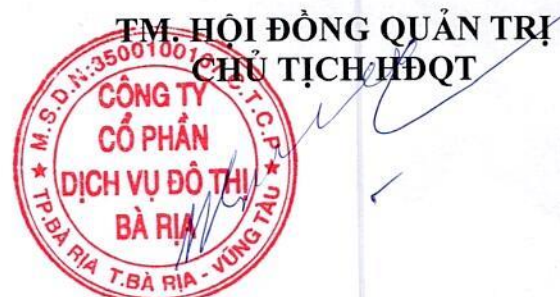 TM. HỘI ĐỒNG QUẢN TRỊ
CHỦ TỊCH HĐQT
M.S.D.N:350010010
C.T.C.P
CÔNG TY
CỔ PHẦN
DỊCH VỤ ĐÔ THỊ
BÀ RỊA
TP.BÀ RỊA T.BÀ RỊA - VŨNG TÀU